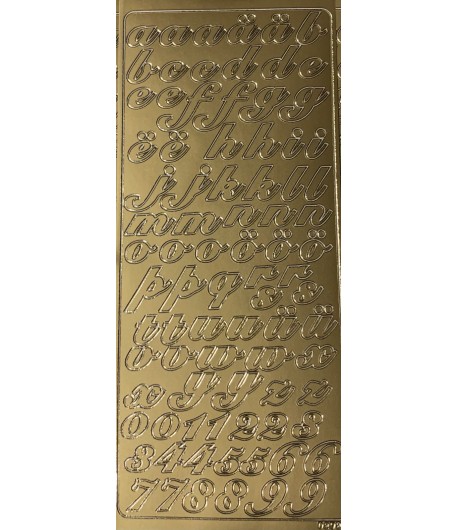 a a a ä ä b
b c c d d e
e e f f g g
ë ë h h i i
j j k k l l
m m n n n
o o o ö ö ö
p p q r r
s s
t t u u ü ü
v v w w x
x y y z z
0 0 1 1 2 2 3
3 4 4 5 5 6 6
7 7 8 8 9 9